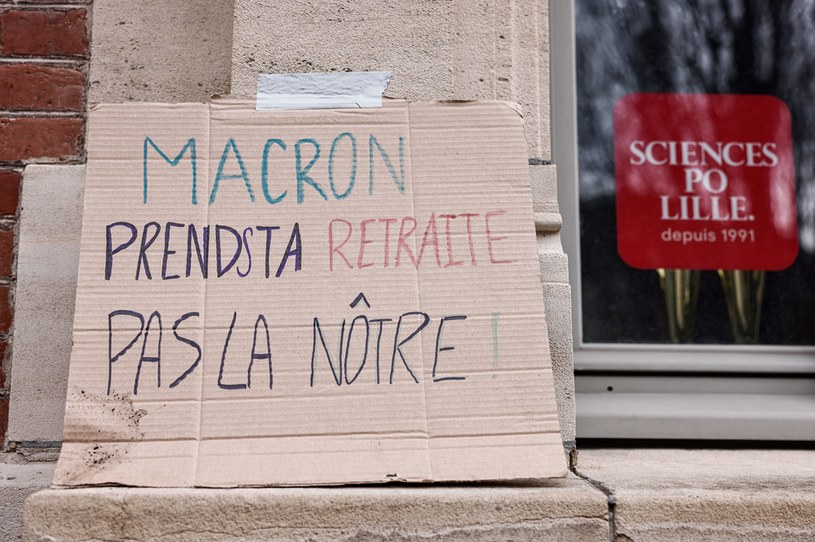 MACRON
PRENDS TA RETRAITE
PAS LA NÔTRE !
SCIENCES
PO
LILLE.
depuis 1991